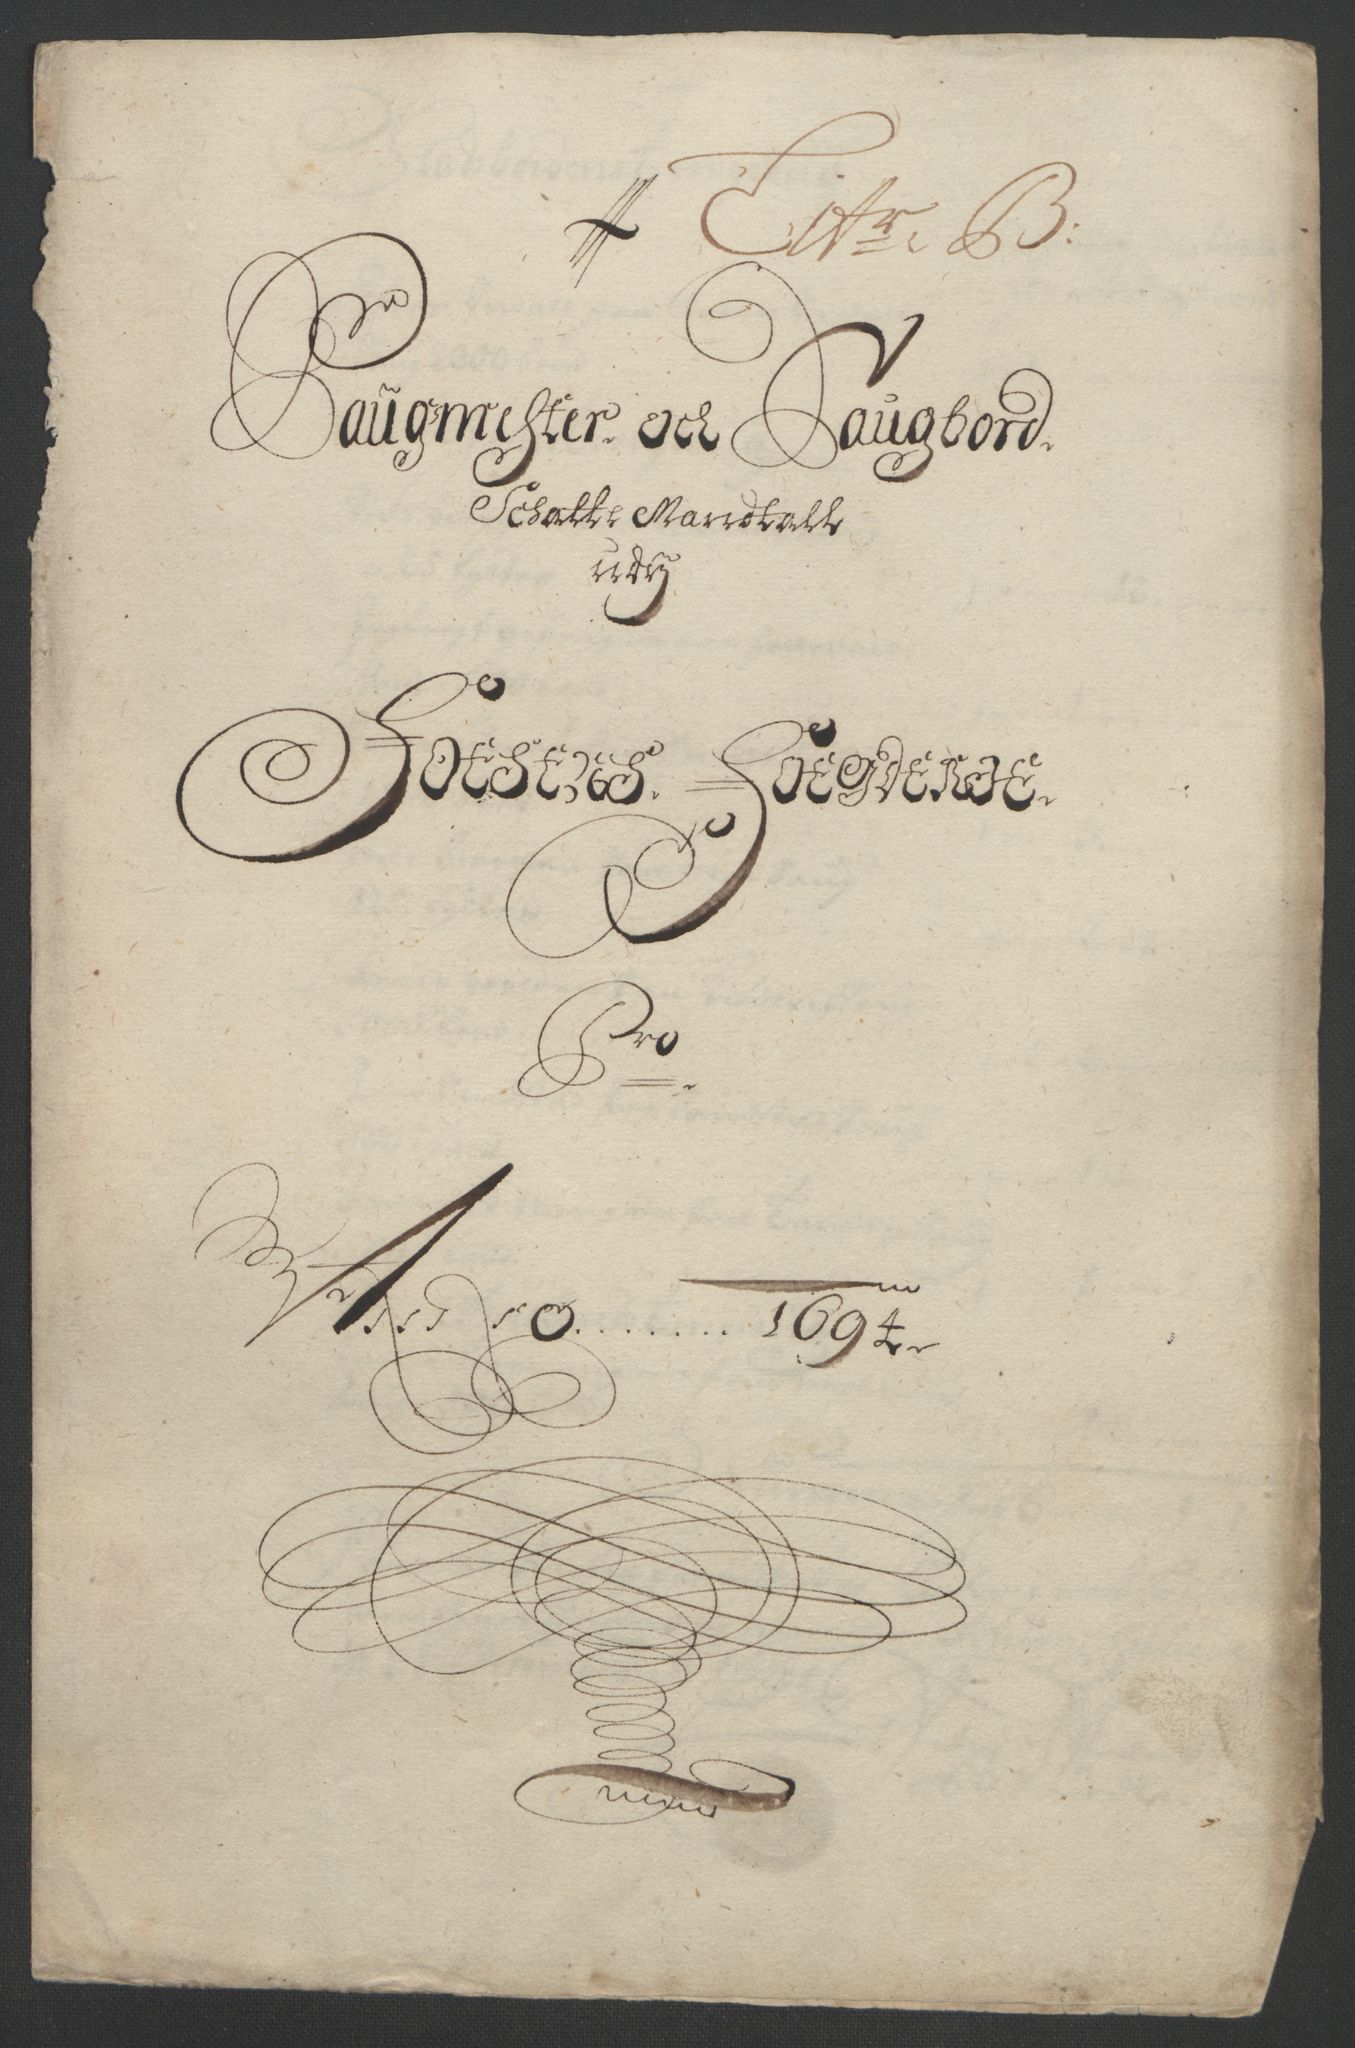 Litr. B:
Saugmester. och Saugbord.
Schatte Mandtall
udj
Foesens Foegderje.
Pro
Anno ....... 1694.